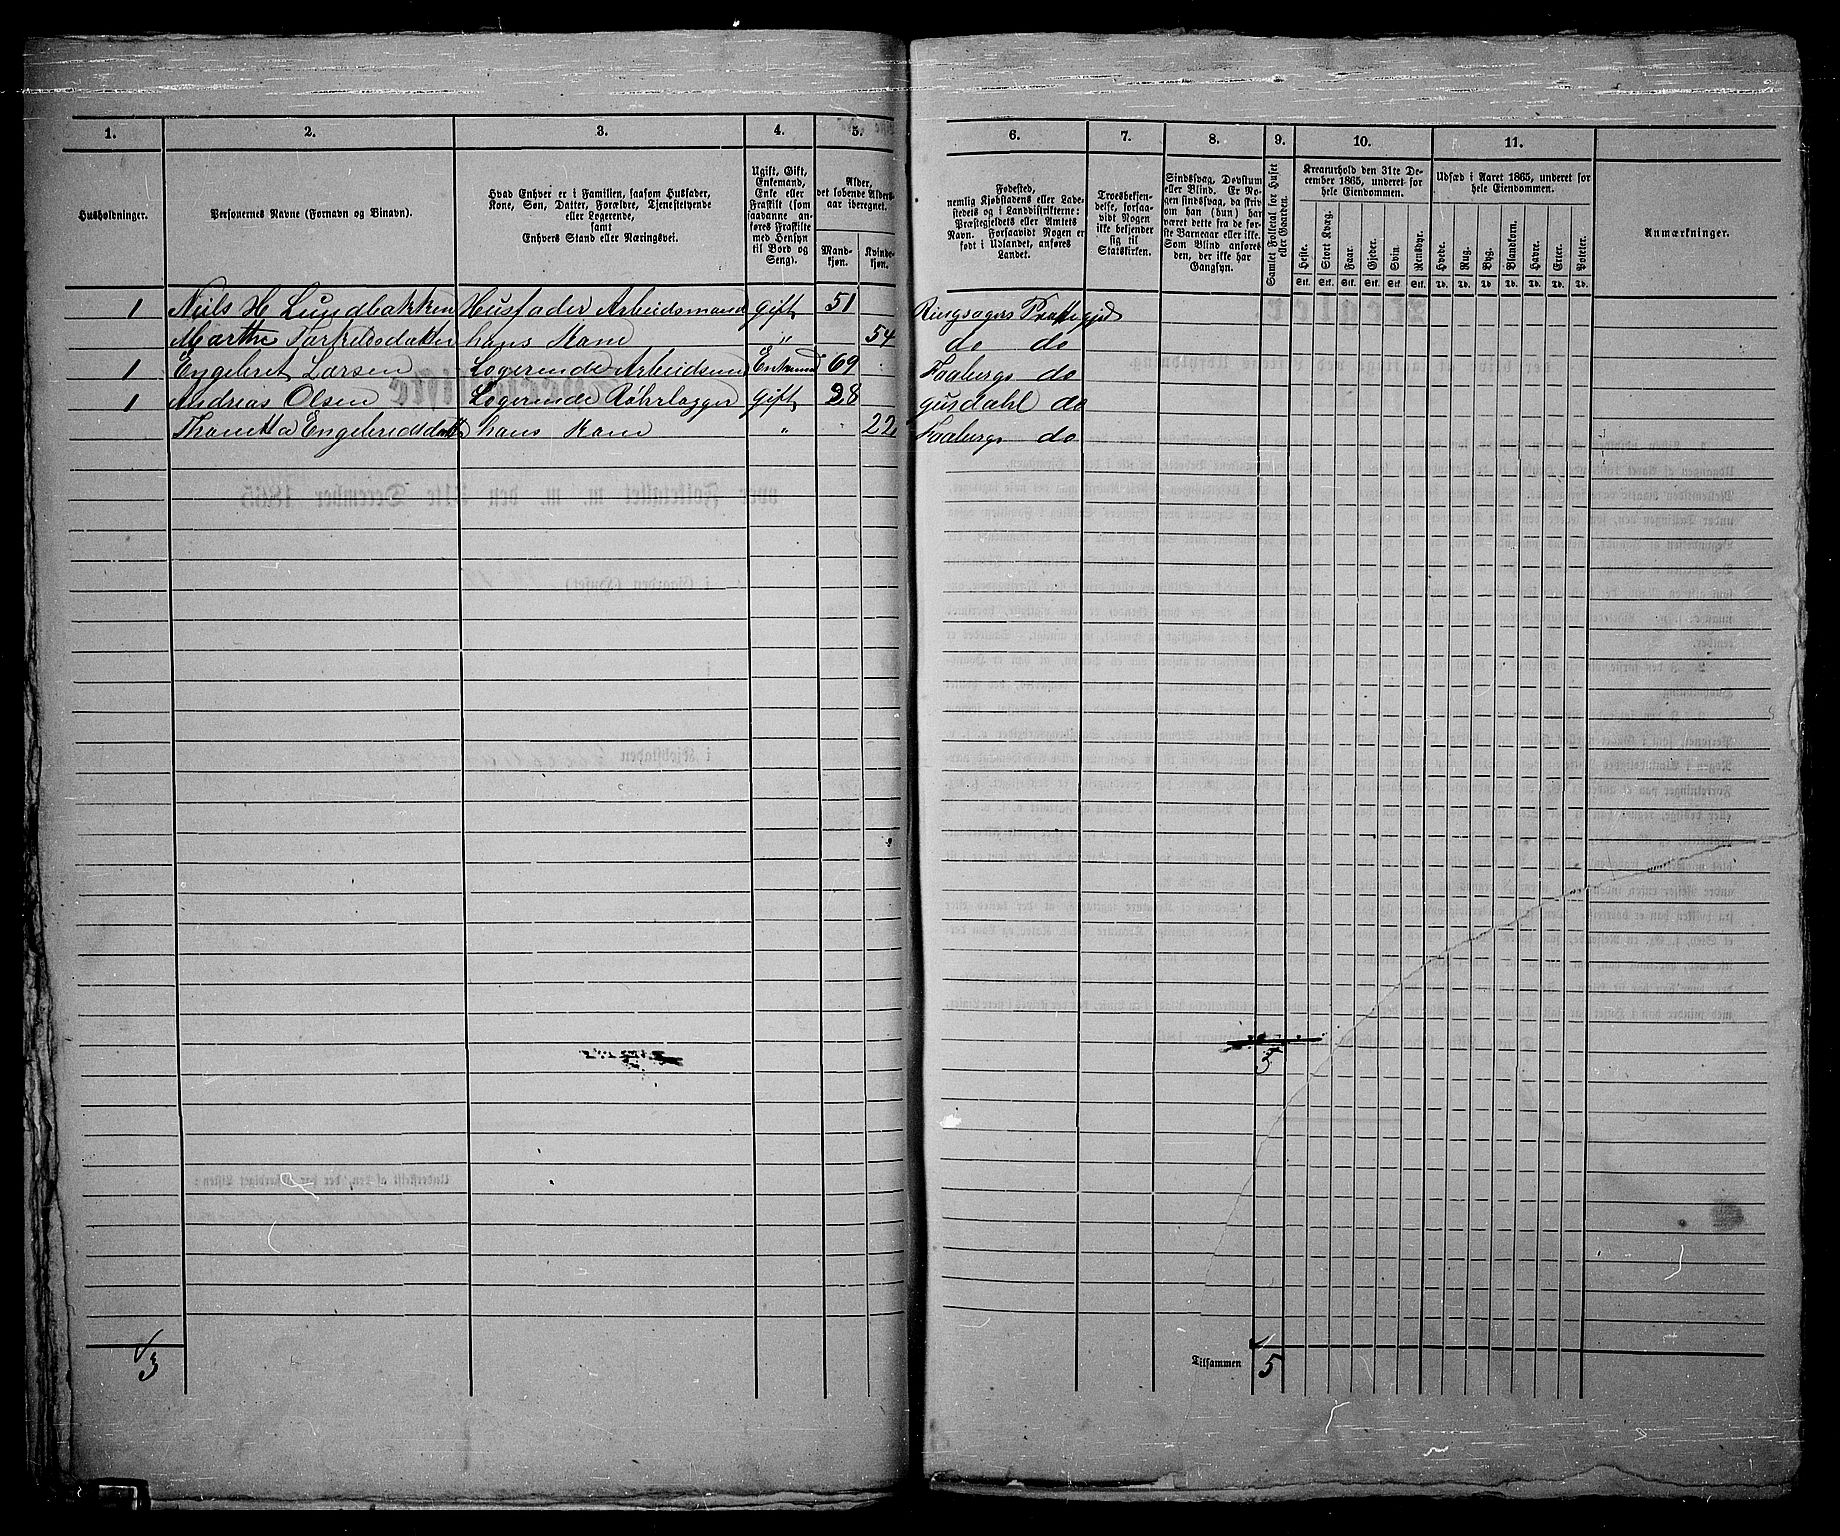 1. 2. 3. 4. 5. 6. 7. 8. 9. 10. 11.
Husholdninger.
Personernes Navne (Fornavn og Binavn).
Hvad Enhver er i Familien, saasom Husfader,
Kone, Søn, Datter, Forældre, Tjenestetyende
eller Logerende,
samt
Enhvers Stand eller Næringsvei.
Ugift, Gift,
Enkemand,
Enke eller
Fraskilt (som
saadanne an-
føres Fraskilte
med Hensyn
til Bord og
Seng).
Alder,
det løbende Alders-
aar iberegnet.
Mand-
kjøn.
Kvinde-
kjøn.
Fødested,
nemlig Kjøbstadens eller Lade-
stedets og i Landdistrikterne:
Præstegjeldets eller Amtets
Navn. Forsaavidt Nogen er
født i Udlandet, anføres
Landet.
Troesbekjen-
delse, forsaa-
vidt Nogen
ikke bekjender
sig til
Statskirken.
Sindssvag, Døvstum
eller Blind. Er No-
gen sindssvag, da skriv
om han (hun) har
været dette fra de før-
ste Barneaar eller ikke.
Som Blind anføres
den, der ikke har
Gangsyn.
Samlet Folketal for Huset
eller Gaarden.
Kreaturhold den 31te De-
cember 1865, underet for
hele Eiendommen.
Heste. Stort Kvæg. Faar. Gjeder. Svin. Rensdyr.
Stk. Stk. Stk. Stk. Stk. Stk.
Udsæd i Aaret 1865, underet for
hele Eiendommen.
Hvede. Rug. Byg. Blandkorn. Havre. Erter. Poteter.
Td. Td. Td. Td. Td. Td. Td.
Anmærkninger.
1 Niels H Lundbakken Husfader Arbeidsmand gift 51 Ringsagers Præstegjeld
Marthe Tarkeldsdatter hans Kone " 54 do do
1 Engebret Larsen Logerende Arbeidsmd Enkemd 69 Faabergs do
1 Andrias Olsen Logerende gift 28 gusdahl do
Thonetta Engebredtsdatt hans Kone " 22 Faabergs do
5
3 Tilsammen 5